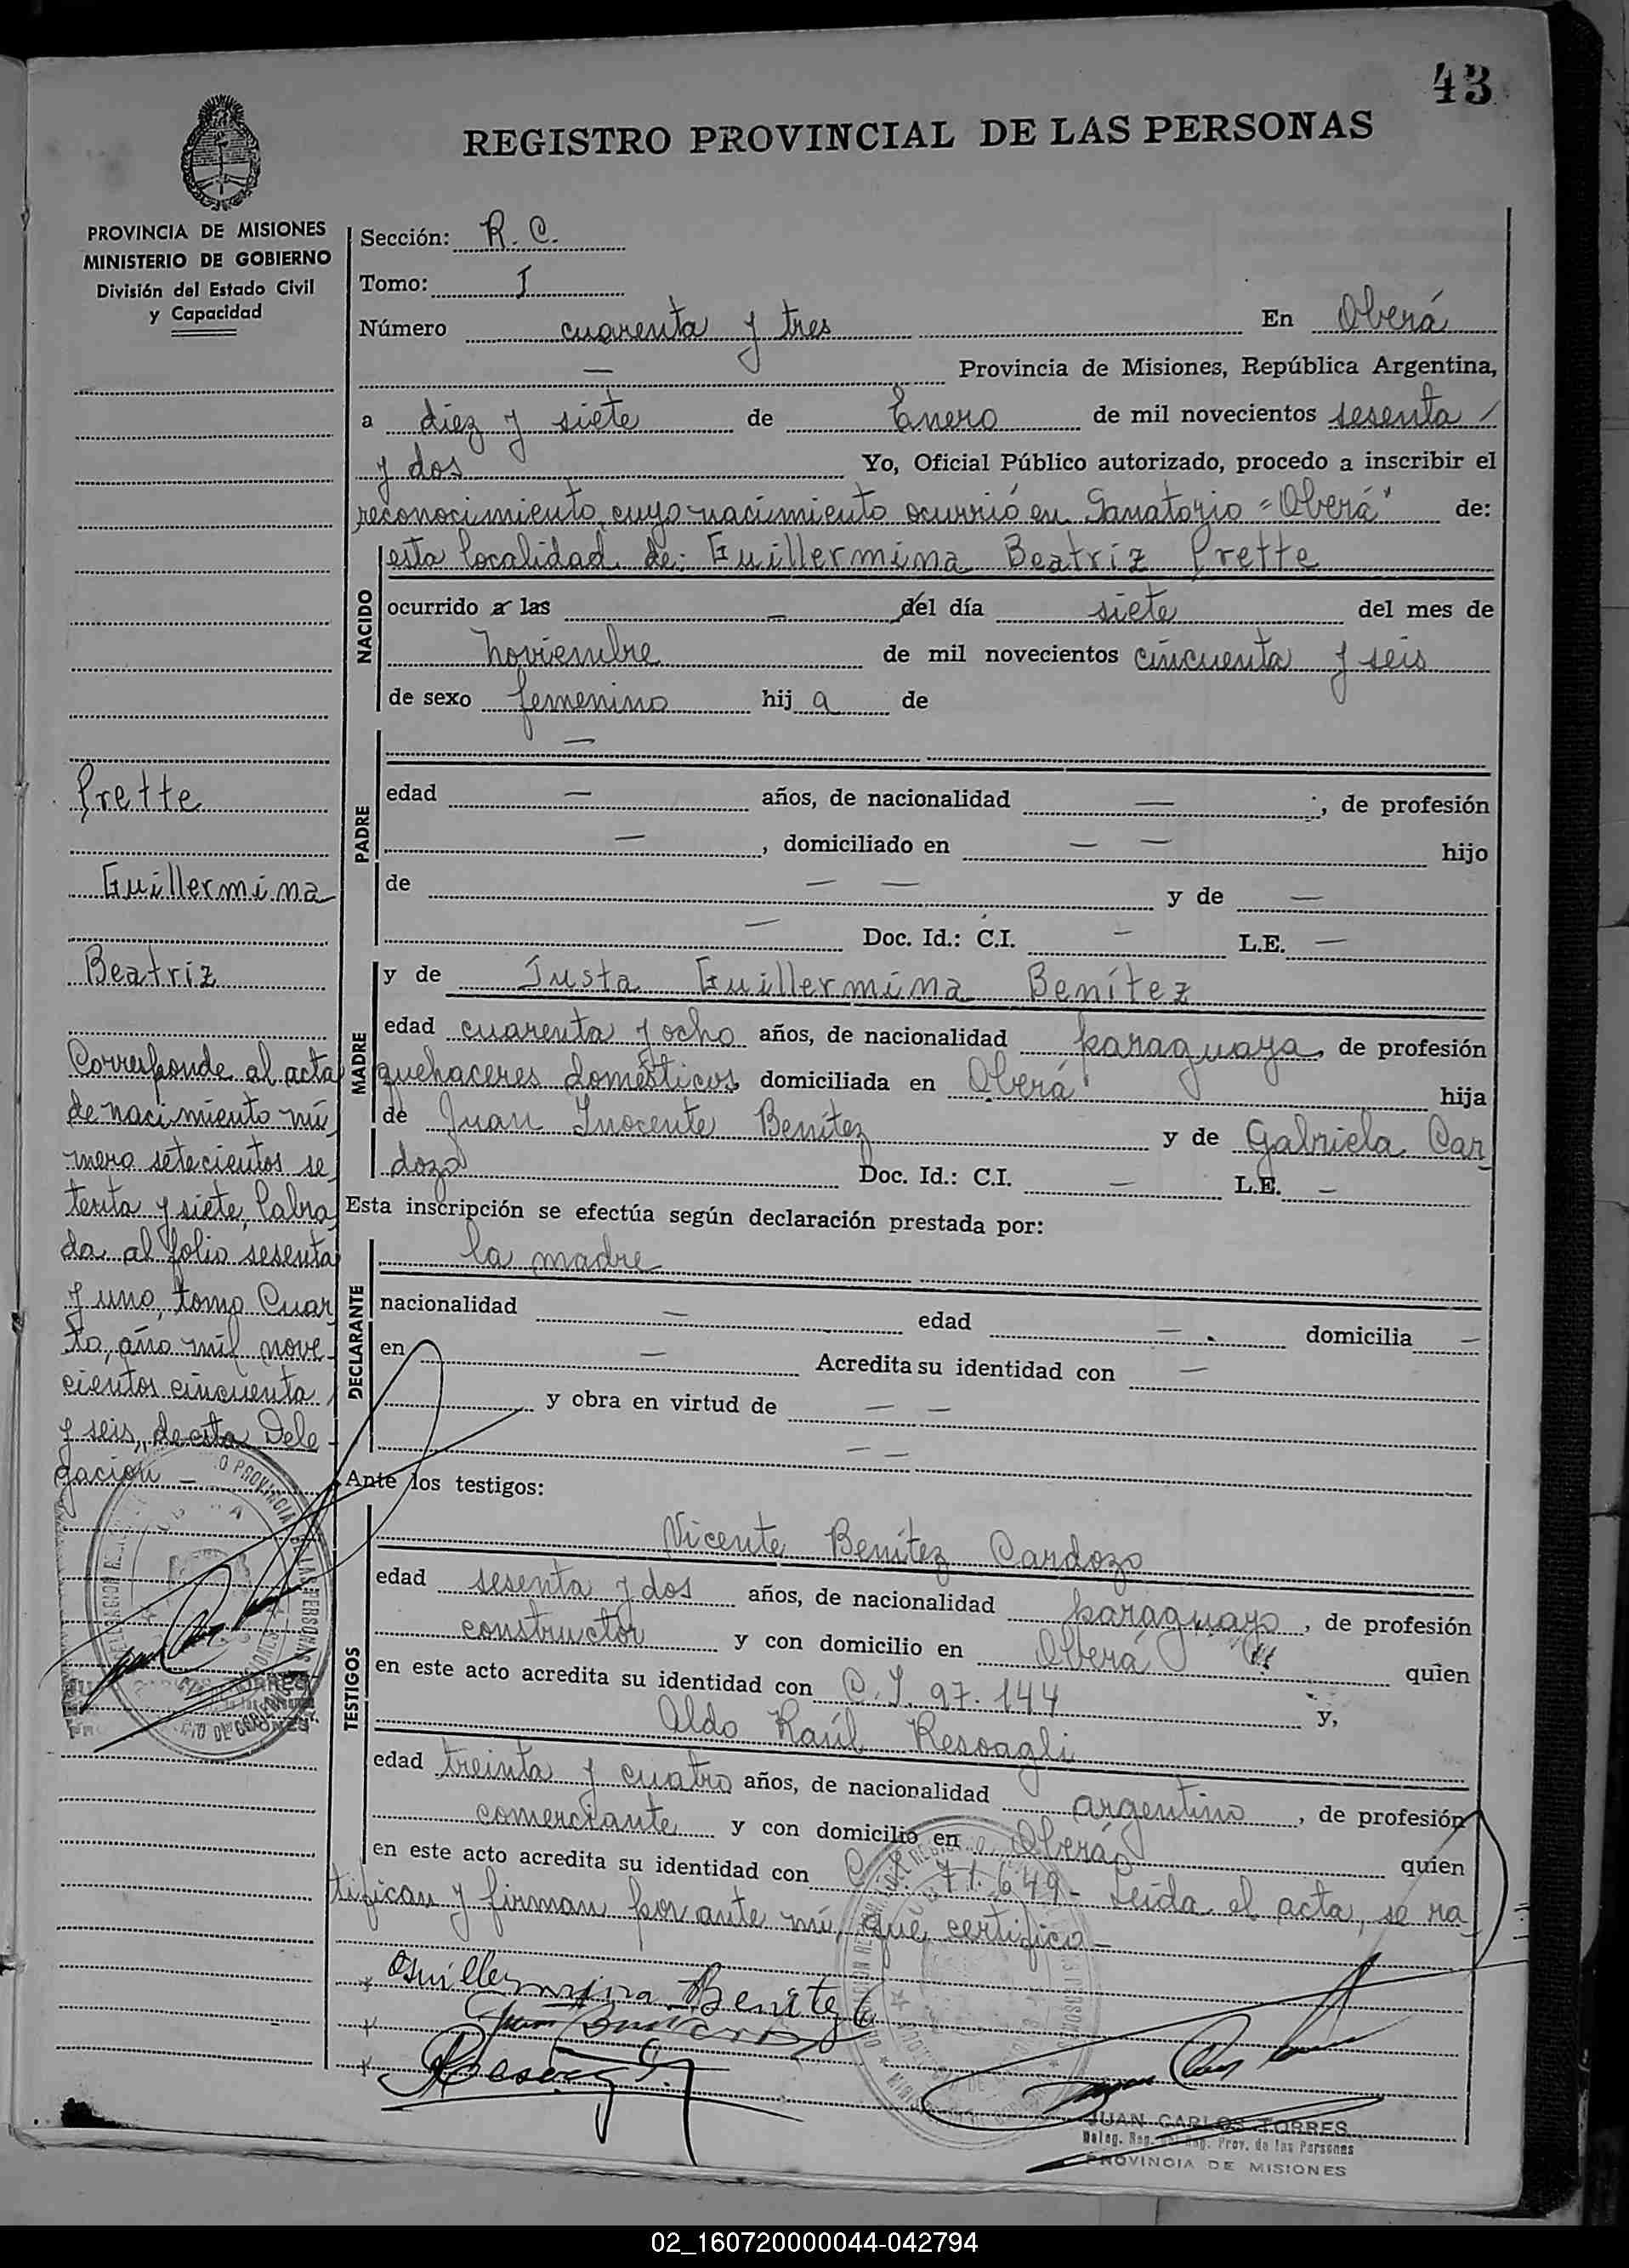 43
REGISTRO PROVINCIAL DE LAS PERSONAS
PROVINCIA DE MISIONES
MINISTERIO DE GOBIERNO
División del Estado Civil
y Capacidad
Sección: R. C.
Tomo: I
Número cuarenta y tres En Oberá
— Provincia de Misiones, República Argentina,
a diez y siete de Enero de mil novecientos sesenta /
y dos Yo, Oficial Público autorizado, procedo a inscribir el
reconocimiento, cuyo nacimiento ocurrió en Sanatorio "Oberá" de:
NACIDO
esta localidad de: Guillermina Beatriz Prette
ocurrido a las — del día siete del mes de
noviembre de mil novecientos cincuenta y seis
de sexo femenino hija de
—
PADRE
edad — años, de nacionalidad —, de profesión
—, domiciliado en — — hijo
de — — y de —
— Doc. Id.: C.I. — L.E. —
MADRE
y de Justa Guillermina Benítez
edad cuarenta y ocho años, de nacionalidad paraguaya, de profesión
quehaceres domésticos domiciliada en Oberá hija
de Juan Inocente Benítez y de Gabriela Car
dozo Doc. Id.: C.I. — L.E. —
Esta inscripción se efectúa según declaración prestada por:
DECLARANTE
la madre
nacionalidad — edad — domicilia —
en — Acredita su identidad con —
y obra en virtud de — —
— —
Ante los testigos:
TESTIGOS
Vicente Benítez Cardozo
edad sesenta y dos años, de nacionalidad paraguayo, de profesión
constructor y con domicilio en Oberá quien
en este acto acredita su identidad con C. I. 97.144 y,
Aldo Raúl Resoagli
edad treinta y cuatro años, de nacionalidad argentino, de profesión
comerciante y con domicilio en Oberá quien
en este acto acredita su identidad con C. I. 71.649- Leída el acta, se ra
tifican y firman por ante mí, que certifico-
Prette
Guillermina
Beatriz
Corresponde al acta
de nacimiento nú
mero setecientos se
tenta y siete, labra
da al folio sesenta
y uno, tomo Cuar
to, año mil nove
cientos cincuenta
y seis, de esta Dele
gación —
x Guillermina Benitez
x
x
JUAN CARLOS TORRES
Deleg. Reg. del Reg. Prov. de las Personas
PROVINCIA DE MISIONES
02_160720000044-042794